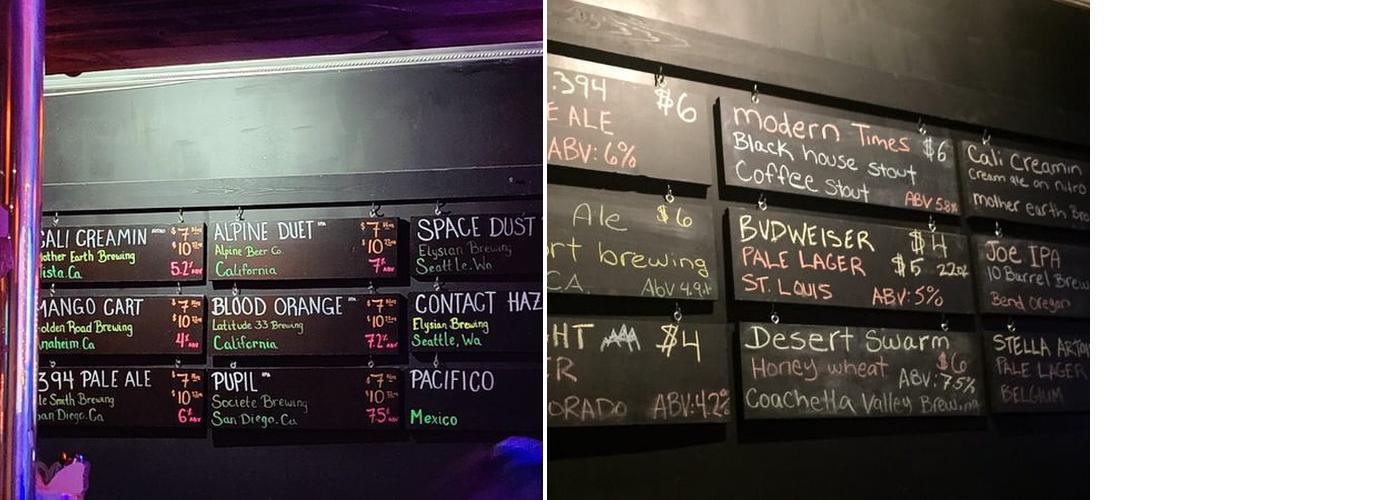 CALI CREAMIN NITRO $7 16oz
Mother Earth Brewing $10 22oz
Vista.Ca 5.2% ABV
ALPINE DUET IPA $7 16oz
Alpine Beer Co. $10 22oz
California 7% ABV
SPACE DUST
Elysian Brewing
Seattle.Wa
MANGO CART $7
Golden Road Brewing $10
Anaheim Ca 4% ABV
BLOOD ORANGE IPA $7
Latitude 33 Brewing $10
California 7.2% ABV
CONTACT HAZ
Elysian Brewing
Seattle, Wa
394 PALE ALE $7
Ale Smith Brewing $10
San Diego.Ca 6% ABV
PUPIL IPA $7
Societe Brewing $10
San Diego.Ca 7.5% ABV
PACIFICO
Mexico
.394 $6
E ALE
ABV: 6%
modern Times $6
Black house stout
Coffee stout ABV 5.8%
Cali Creamin
Cream ale on nitro
mother earth Bre
Ale $6
ort brewing
CA. AbV 4.9%
BUDWEISER $4
PALE LAGER $5 22oz
ST. LOUIS ABV: 5%
Joe IPA
10 Barrel Brew
Bend Oregon
HT $4
R
ORADO ABV:4.2%
Desert Swarm
Honey wheat $6
ABV: 7.5%
Coachella Valley Brewing
STELLA ARTO
PALE LAGER
BELGIUM